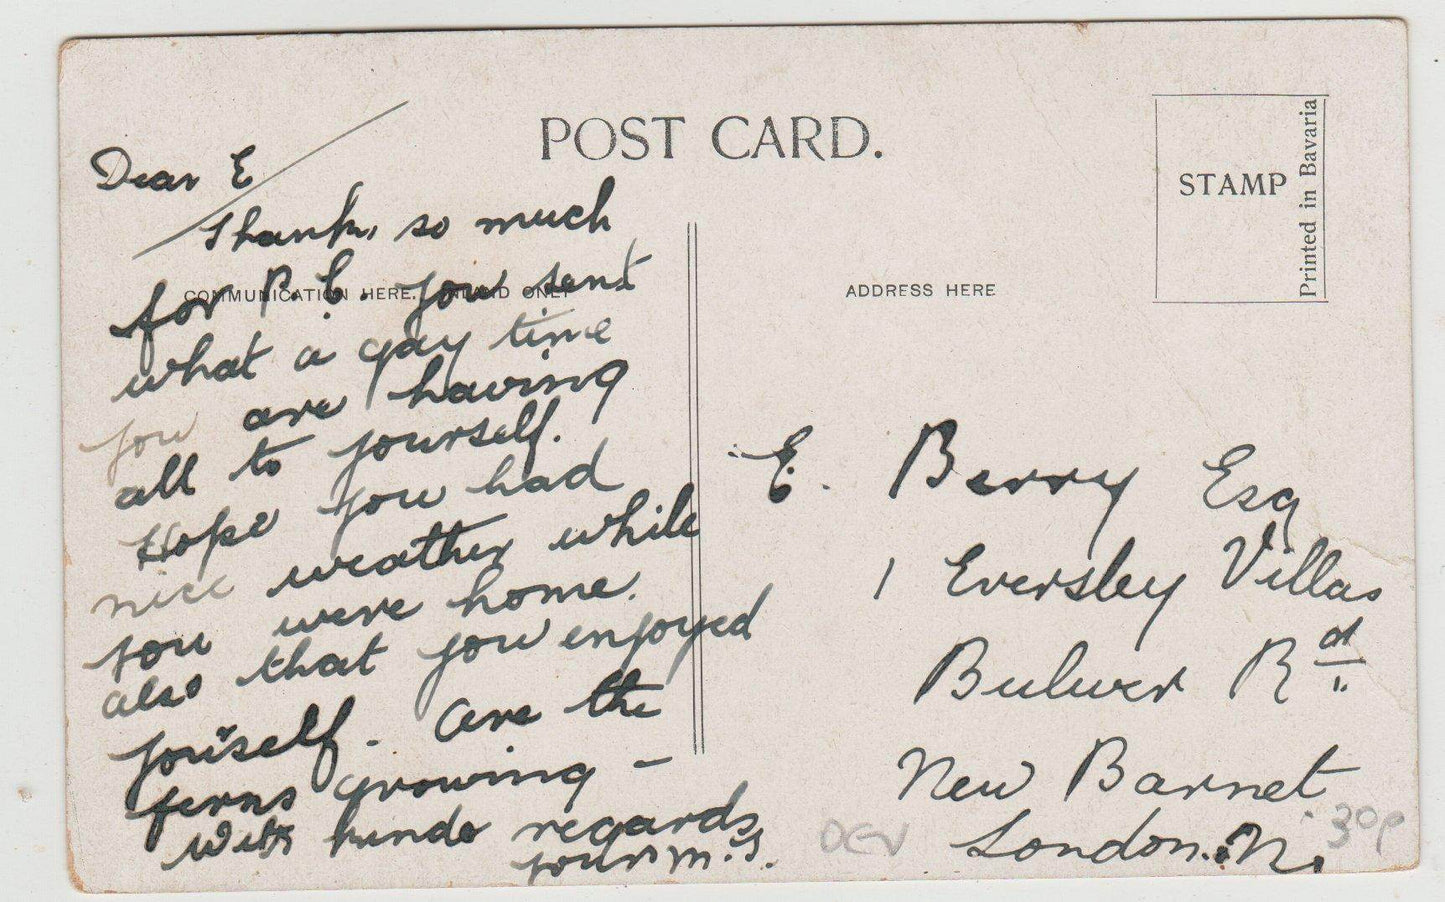 POST CARD.
STAMP
Printed in Bavaria
COMMUNICATION HERE. INLAND ONLY
ADDRESS HERE
Dear E
Thanks so much
for P.C. you sent
what a gay time
you are having
all to yourself.
Hope you had
nice weather while
you were home.
also that you enjoyed
yourself. Are the
ferns growing –
With kinds regards
your M.S.
E. Berry Esq
1 Eversley Villas
Bulwer Rd
New Barnet
London. N.
DEV
30p